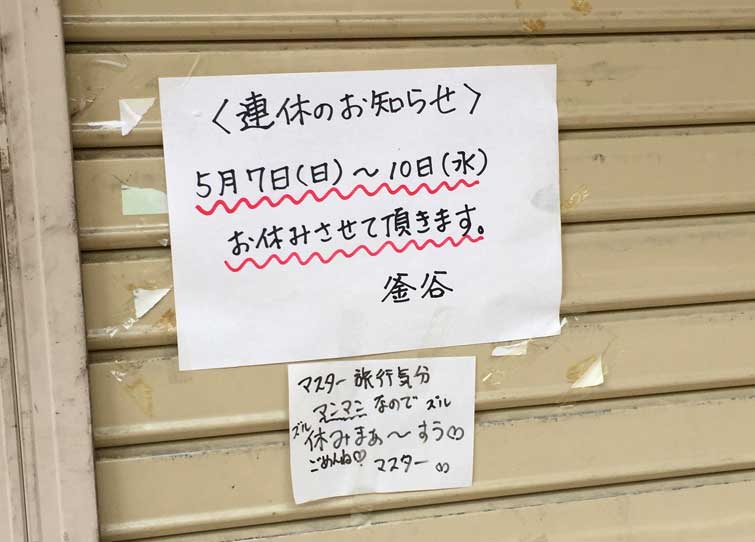 〈連休のお知らせ〉
5月7日(日)～10日(水)
お休みさせて頂きます。
釜谷
マスター旅行気分
マンマンなのでズル
ズル休みまぁ～すう♡
ごめんね♡マスター